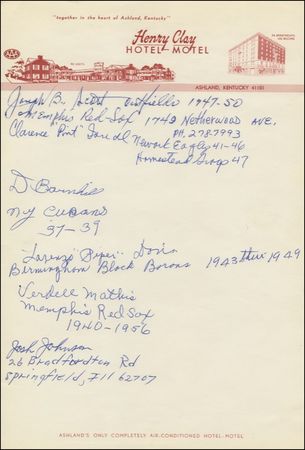 "together in the heart of Ashland, Kentucky"
Henry Clay
HOTEL-MOTEL
ASHLAND, KENTUCKY 41101
Joseph B. Scott outfielder 1947-50
Memphis Red-Sox 1742 Netherwood AVE.
PH. 278-7993
Clarence "Pint" Isreal Newark Eagles 41-46
Homestead Grays 47
D Barnhill
NY CUBANS
37-39
Lorenzo "Piper" Davis
Birmingham Black Barons 1943 thru 1949
Verdell Mathis
Memphis Red Sox
1940-1956
Josh Johnson
26 Bradfordton Rd
Springfield, Ill 62707
ASHLAND'S ONLY COMPLETELY AIR-CONDITIONED HOTEL-MOTEL